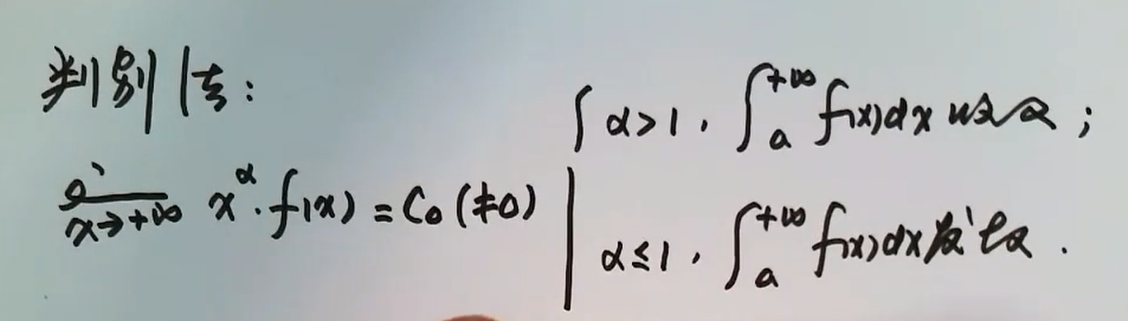 判别法:
x→+∞ x^α·f(x)=C₀(≠0)
α>1, ∫_a^{+∞} f(x)dx 收敛;
α≤1, ∫_a^{+∞} f(x)dx 发散.